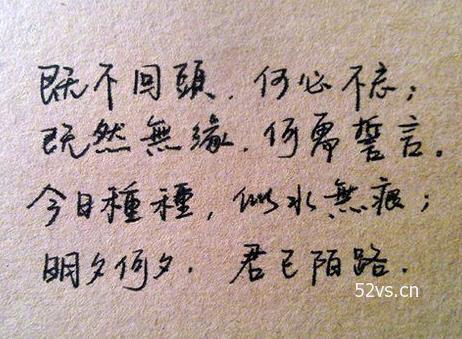 既不回頭，何必不忘；
既然無緣，何需誓言。
今日種種，似水無痕；
明夕何夕，君已陌路．
52vs.cn